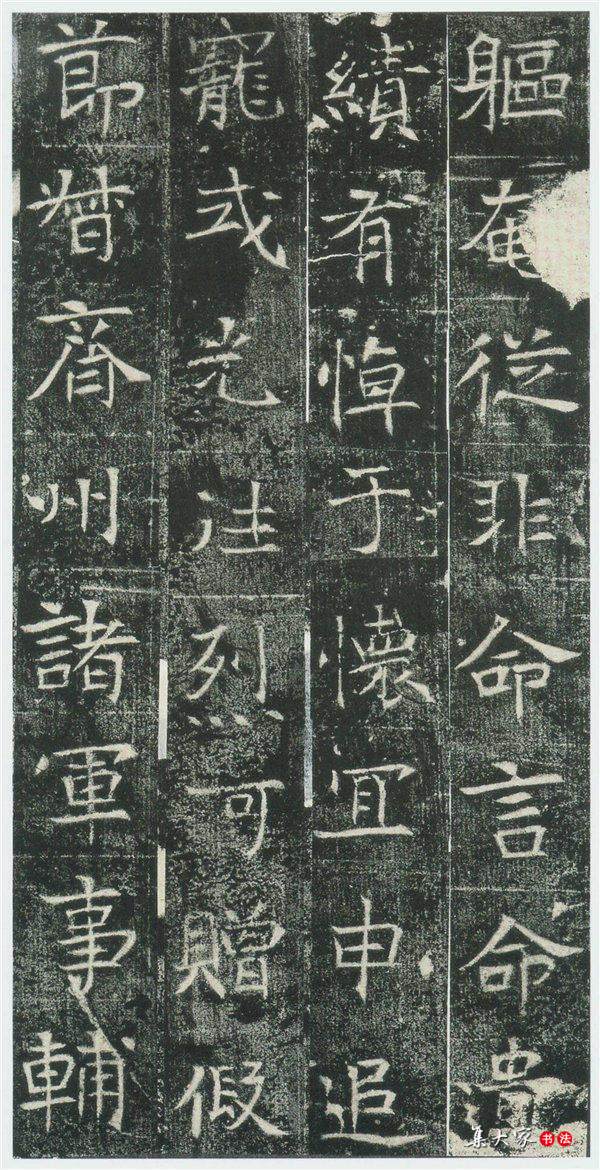 軀奄從非命言命遺
績有悼于懷宜申追
寵式光注烈可贈假
節督齊州諸軍事輔
集大家书法